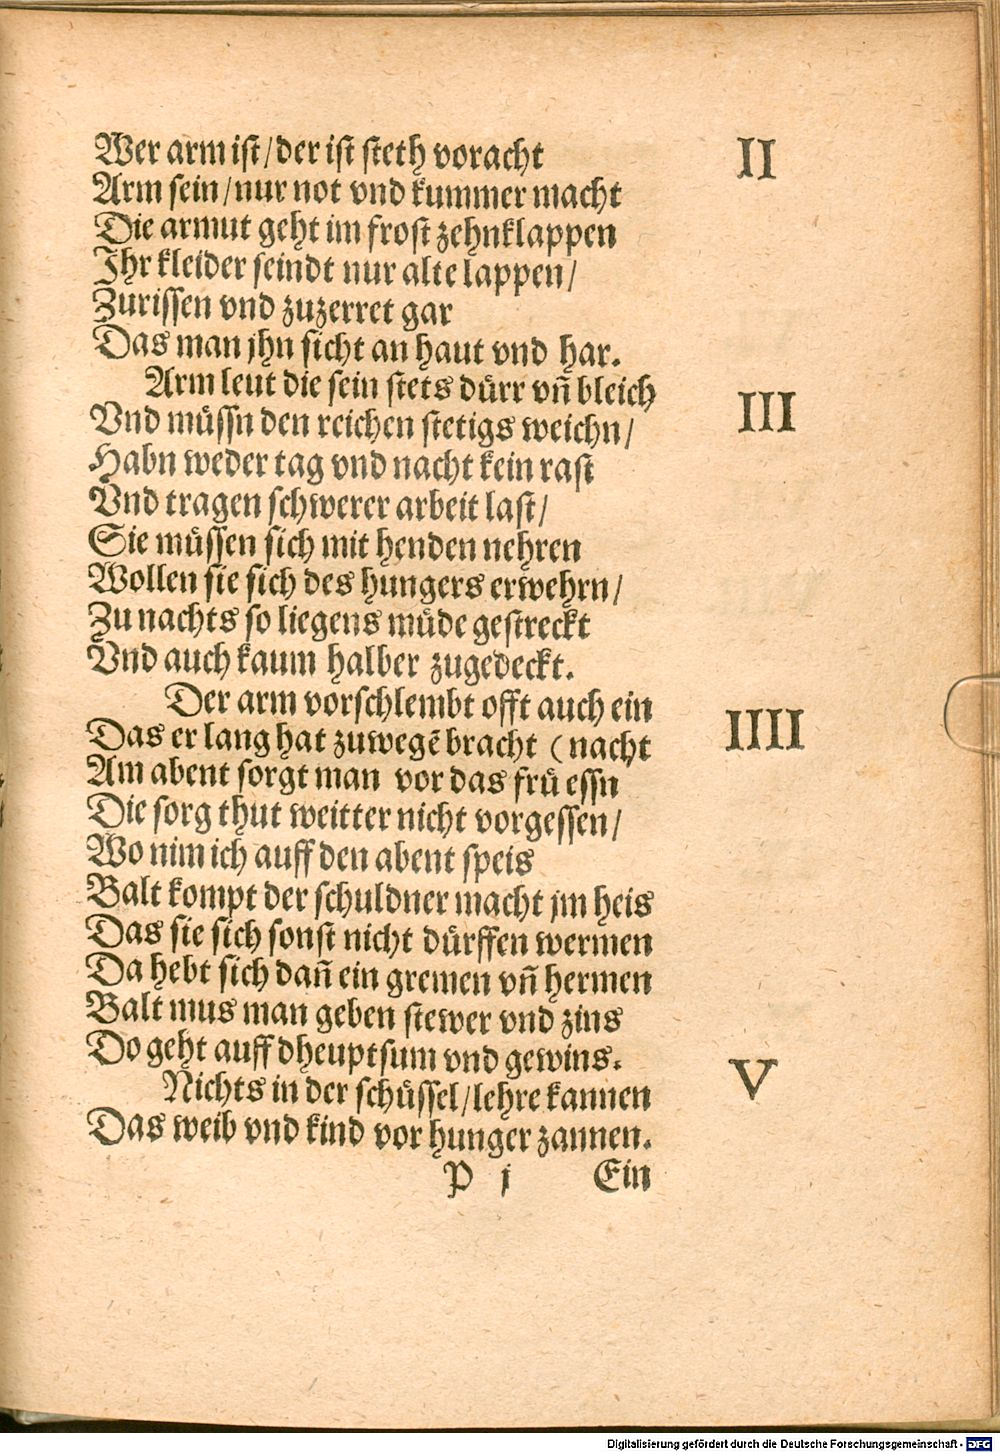 Wer arm ist/der ist steth voracht
II
Arm sein/nur not vnd kummer macht
Die armut geht im frost zehnklappen
Jhr kleider seindt nur alte lappen/
Zurissen vnd zuzerret gar
Das man jhn sicht an haut vnd har.
Arm leut die sein stets dürr vñ bleich
III
Vnd müssn den reichen stetigs weichn/
Habn weder tag vnd nacht kein rast
Vnd tragen schwerer arbeit last/
Sie müssen sich mit henden nehren
Wollen sie sich des hungers erwehrn/
Zu nachts so liegens müde gestreckt
Vnd auch kaum halber zugedeckt.
Der arm vorschlembt offt auch ein
IIII
Das er lang hat zuwegẽ bracht (nacht
Am abent sorgt man vor das frü essn
Die sorg thut weitter nicht vorgessen/
Wo nim ich auff den abent speis
Balt kompt der schuldner macht jm heis
Das sie sich sonst nicht dürffen wermen
Da hebt sich dañ ein gremen vñ hermen
Balt mus man geben stewer vnd zins
Do geht auff dheuptsum vnd gewins.
V
Nichts in der schüssel/lehre kannen
Das weib vnd kind vor hunger zannen.
P j Ein
Digitalisierung gefördert durch die Deutsche Forschungsgemeinschaft - DFG